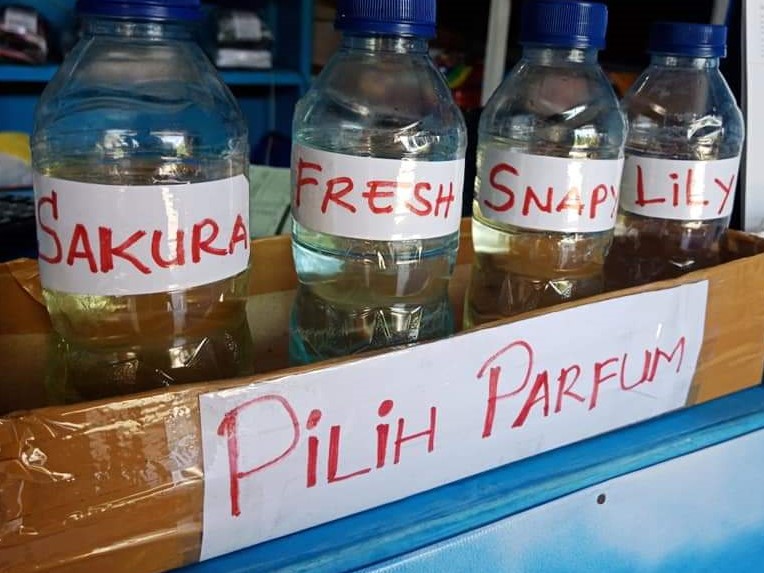 SAKURA
FRESH
SNAPY
LiLY
PiLiH PARFUM